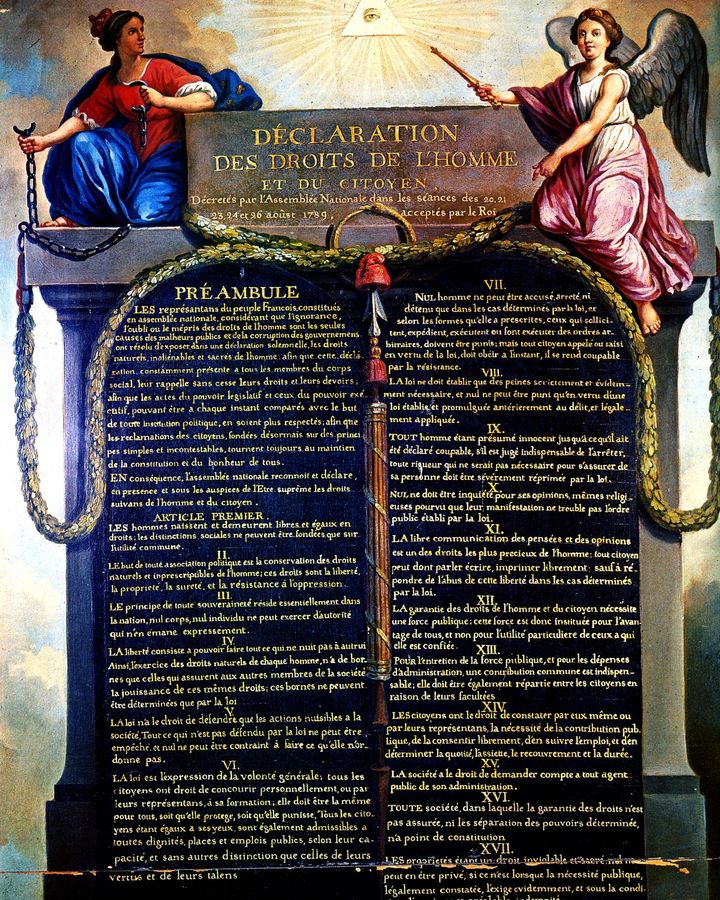 DÉCLARATION
DES DROITS DE L'HOMME
ET DU CITOYEN,
Décretés par l'Assemblée Nationale dans les séances des 20, 21
23, 24 et 26 aoûst 1789, acceptés par le Roi
PRÉAMBULE
LES représantans du peuple Francois, constitués
en assemblée nationale, considérant que l'ignorance,
l'oubli ou le mépris des droits de l'homme sont les seules
causes des malheurs publics et de la corruption des gouvernemens
ont résolu d'exposer dans une déclaration solemnelle, les droits
naturels, inaliénables et sacrés de l'homme; afin que cette décla-
ration, constamment présente a tous les membres du corps
social, leur rappelle sans cesse leurs droits et leurs devoirs;
afin que les actes du pouvoir législatif et ceux du pouvoir exé-
cutif, pouvant être a chaque instant comparés avec le but
de toute institution politique, en soient plus respectés; afin que
les reclamations des citoyens, fondées désormais sur des princi-
pes simples et incontestables, tournent toujours au maintien
de la constitution et du bonheur de tous.
EN conséquence, l'assemblée nationale reconnoit et déclare,
en presence et sous les auspices de l'Etre suprême les droits
suivans de l'homme et du citoyen.
ARTICLE PREMIER.
LES hommes naissent et demeurent libres et égaux en
droits; les distinctions sociales ne peuvent être fondées que sur
l'utilité commune.
II.
LE but de toute association politique est la conservation des droits
naturels et inprescriptibles de l'homme; ces droits sont la liberté,
la propriété, la sureté, et la résistance à l'oppression.
III.
LE principe de toute souveraineté réside essentiellement dans
la nation, nul corps, nul individu ne peut exercer d'autorité
qui n'en émane expressément.
IV.
LA liberté consiste a pouvoir faire tout ce qui ne nuit pas à autrui
Ainsi, l'exercice des droits naturels de chaque homme, n'a de bor-
nes que celles qui assurent aux autres membres de la société
la jouissance de ces mêmes droits; ces bornes ne peuvent
être déterminées que par la loi
V.
LA loi n'a le droit de défendre que les actions nuisibles a la
société, Tout ce qui n'est pas défendu par la loi ne peut être
empêché, et nul ne peut être contraint à faire ce qu'elle n'or-
donne pas.
VI.
LA loi est l'expression de la volonté générale; tous les
citoyens ont droit de concourir personnellement, ou par
leurs représentans, à sa formation; elle doit être la même
pour tous, soit qu'elle protege, soit qu'elle punisse, Tous les cito-
yens étant égaux a ses yeux, sont également admissibles a
toutes dignités, places et emplois publics, selon leur ca-
pacité, et sans autres distinction que celles de leurs
vertus et de leurs talens
VII.
NUL homme ne peut être accusé, arreté, ni
détenu que dans les cas déterminés par la loi, et
selon les formes qu'elle a préscrites, ceux qui sollici-
tent, expédient, exécutent ou font exécuter des ordres ar-
bitraires, doivent être punis; mais tout citoyen appelé ou saisi
en vertu de la loi, doit obéir a l'instant, il se rend coupable
par la résistance.
VIII.
LA loi ne doit établir que des peines strictement et évidem-
ment nécessaire, et nul ne peut être puni qu'en vertu d'une
loi établie et promulguée antérierement au délit, et légale-
ment appliquée.
IX.
TOUT homme étant présumé innocent jusqu'a ce qu'il ait
été déclaré coupable, s'il est jugé indispensable de l'arrêter,
toute rigueur qui ne serait pas nécessaire pour s'assurer de
sa personne doit être sévèrement réprimée par la loi.
X.
NUL ne doit être inquiété pour ses opinions, mêmes religi-
euses pourvu que leur manifestation ne trouble pas l'ordre
public établi par la loi.
XI.
LA libre communication des pensées et des opinions
est un des droits les plus precieux de l'homme; tout citoyen
peut donc parler écrire, imprimer librement: sauf à ré-
pondre de l'abus de cette liberté dans les cas déterminés
par la loi.
XII.
LA garantie des droits de l'homme et du citoyen nécessite
une force publique; cette force est donc instituée pour l'avan-
tage de tous, et non pour l'utilité particuliere de ceux a qui
elle est confiée.
XIII.
POUR l'entretien de la force publique, et pour les dépenses
d'administration, une contribution commune est indispen-
sable; elle doit être également répartie entre les citoyens en
raison de leurs facultées
XIV.
LES citoyens ont le droit de constater par eux même ou
par leurs représentans, la nécessité de la contribution pub-
lique, de la consentir librement, d'en suivre l'emploi, et d'en
déterminer la quotité, l'assiette, le recouvrement et la durée.
XV.
LA société a le droit de demander compte a tout agent
public de son administration.
XVI.
TOUTE société, dans laquelle la garantie des droits n'est
pas assurée, ni les séparation des pouvoirs déterminée,
n'a point de constitution
XVII.
LES proprietés étant un droit inviolable et sacré, nul ne
peut en être privé, si ce n'est lorsque la nécessité publique,
légalement constatée, l'exige evidemment, et sous la condi-